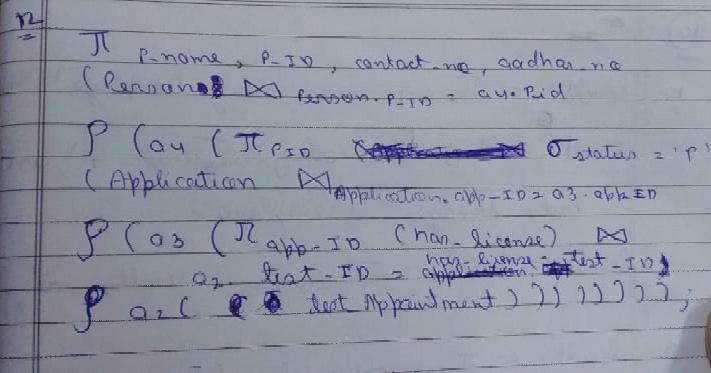 12
π P-name, P-ID, contact-no, aadhar-no
(Person ⋈ Person.P-ID = a4.Pid
ρ (a4 (π PID σ status = 'P'
(Application ⋈ Application.app-ID = a3.appID
ρ (a3 (π app-ID (has-license) ⋈
a2. test-ID = has-license.test-ID)
ρ a2 ( test Appointment ) ) ) ) ) ) ) ) ;